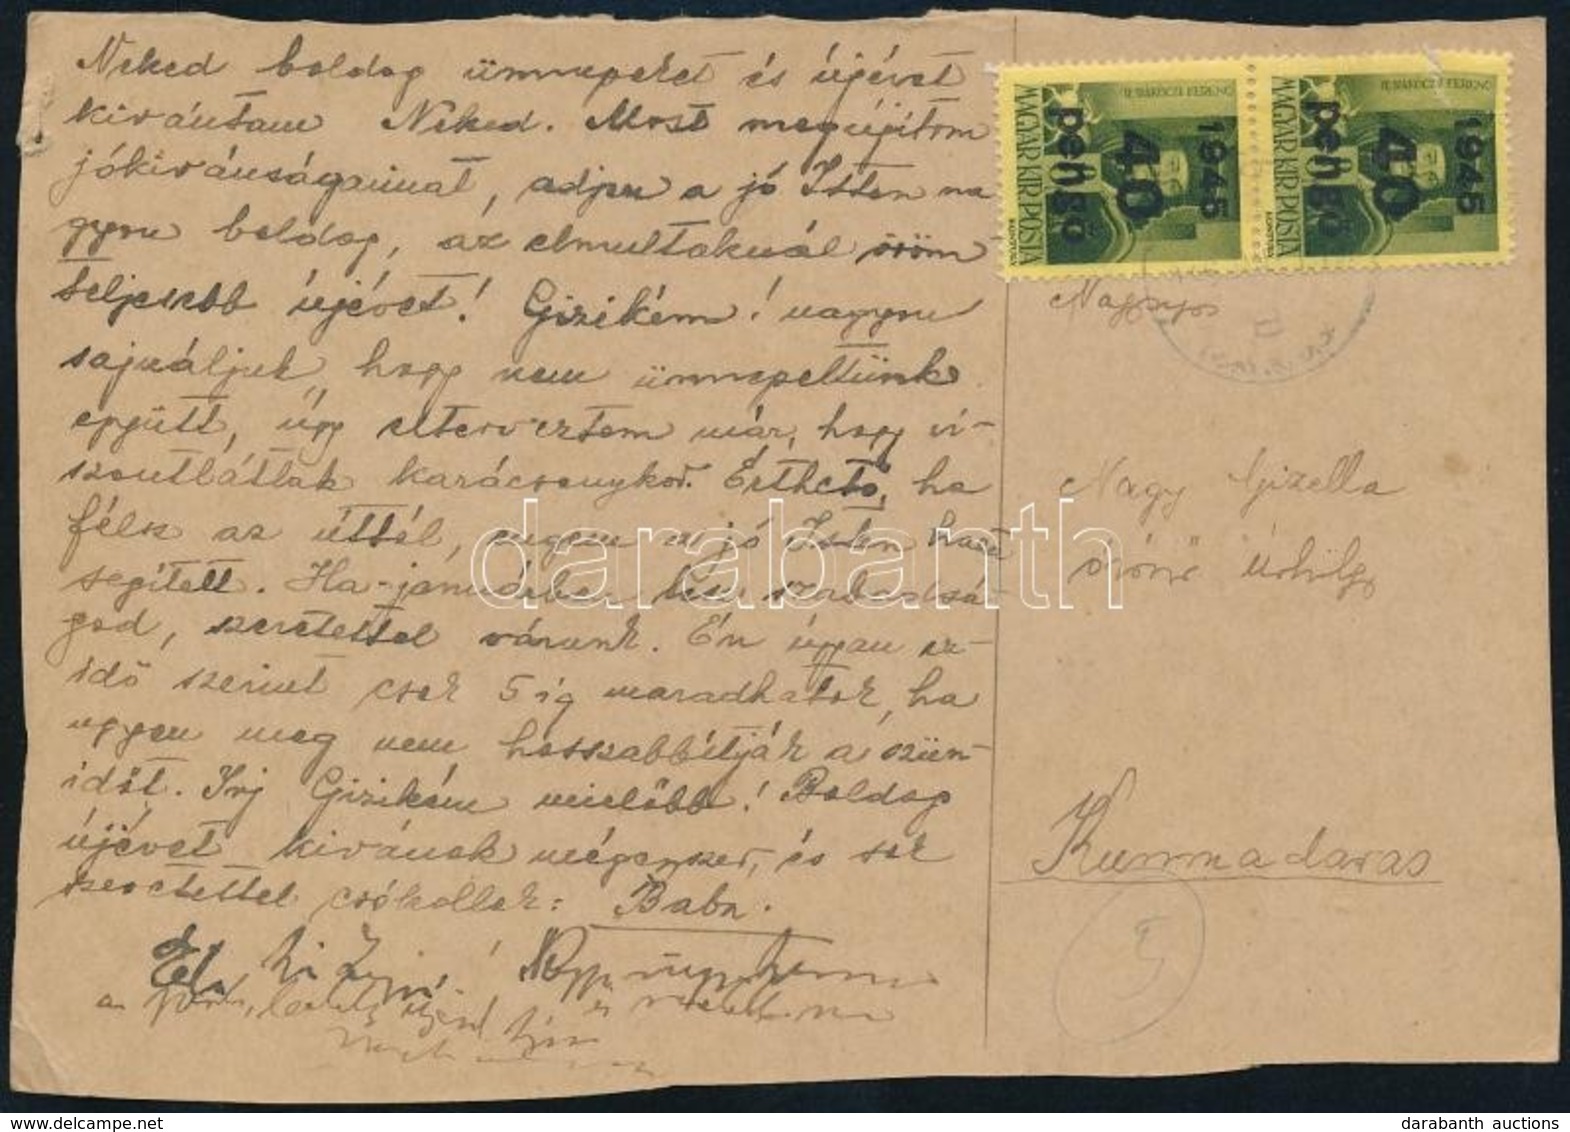 Neked boldog ünnepeket és újévet
kivántam Neked. Most megújítom
jókivánságaimat, adjon a jó Isten na
gyon boldog, az elmultaknál öröm
teljesebb újévet! Gizikém! nagyon
sajnáljuk, hogy nem ünnepeltünk
együtt, úgy elterveztem már, hogy vi-
szontlátlak karácsonykor. Érthető, ha
félsz az úttól, engem a jó Isten haza
segített. Ha januárban lesz szabadsá-
god, szeretettel várunk. Én úgyan sz-
idő szerint csak 5 ig maradhatok, ha
ugyan meg nem hosszabbítják a szün-
időt. Irj Gizikém mielőbb! Boldog
újévet kivánok mégegyszer, és sok
szeretettel csókollak: Baba.
MAGYAR KIR. POSTA
II. RÁKÓCZI FERENC
1945
40
pengő
MAGYAR KIR. POSTA
II. RÁKÓCZI FERENC
1945
40
pengő
Nagy Gizella
úrhölgy
Kunmadaras
5
darabanth
darabanth auctions